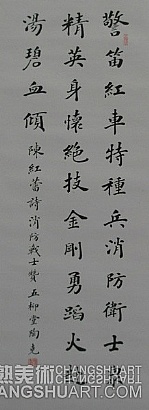 警笛紅車特種兵消防衛士最
精英身懷絕技金剛勇蹈火
湯碧血傾陳紅蕾詩消防戰士贊五柳堂陶克